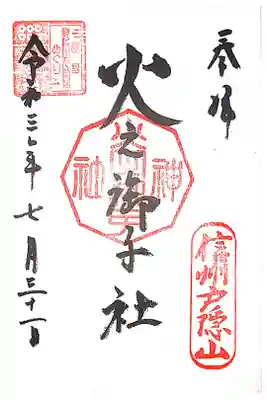 奉拝
信州戸隠山
火之御子社
令和三年七月三十一日